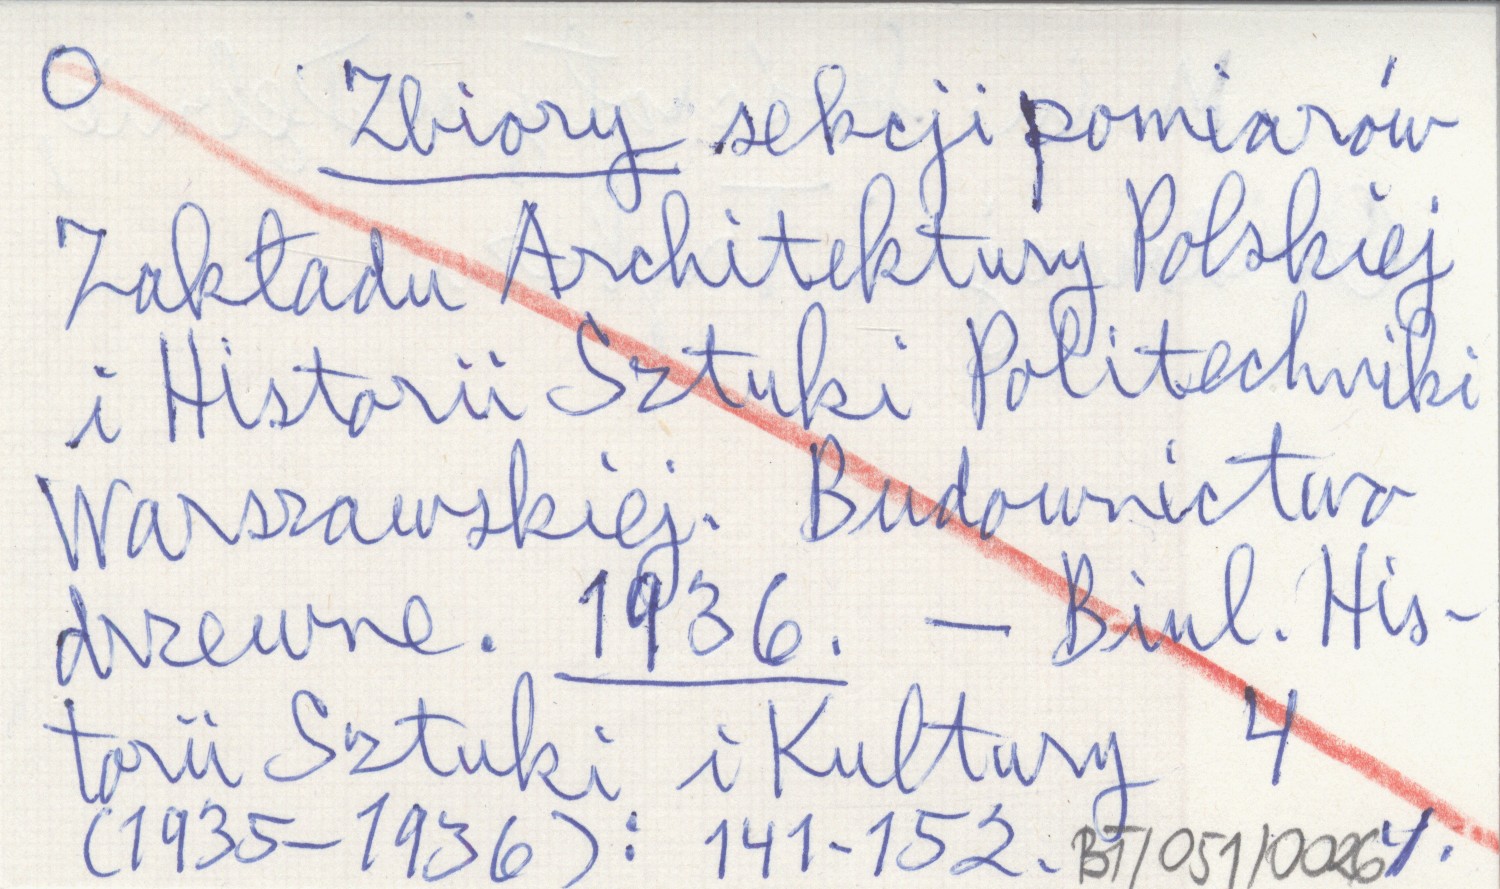 O Zbiory sekcji pomiarów
Zakładu Architektury Polskiej
i Historii Sztuki Politechniki
Warszawskiej. Budownictwo
drzewne. 1936. — Biul. His-
torii Sztuki i Kultury 4
(1935–1936): 141-152. Y.
BT/051/0026